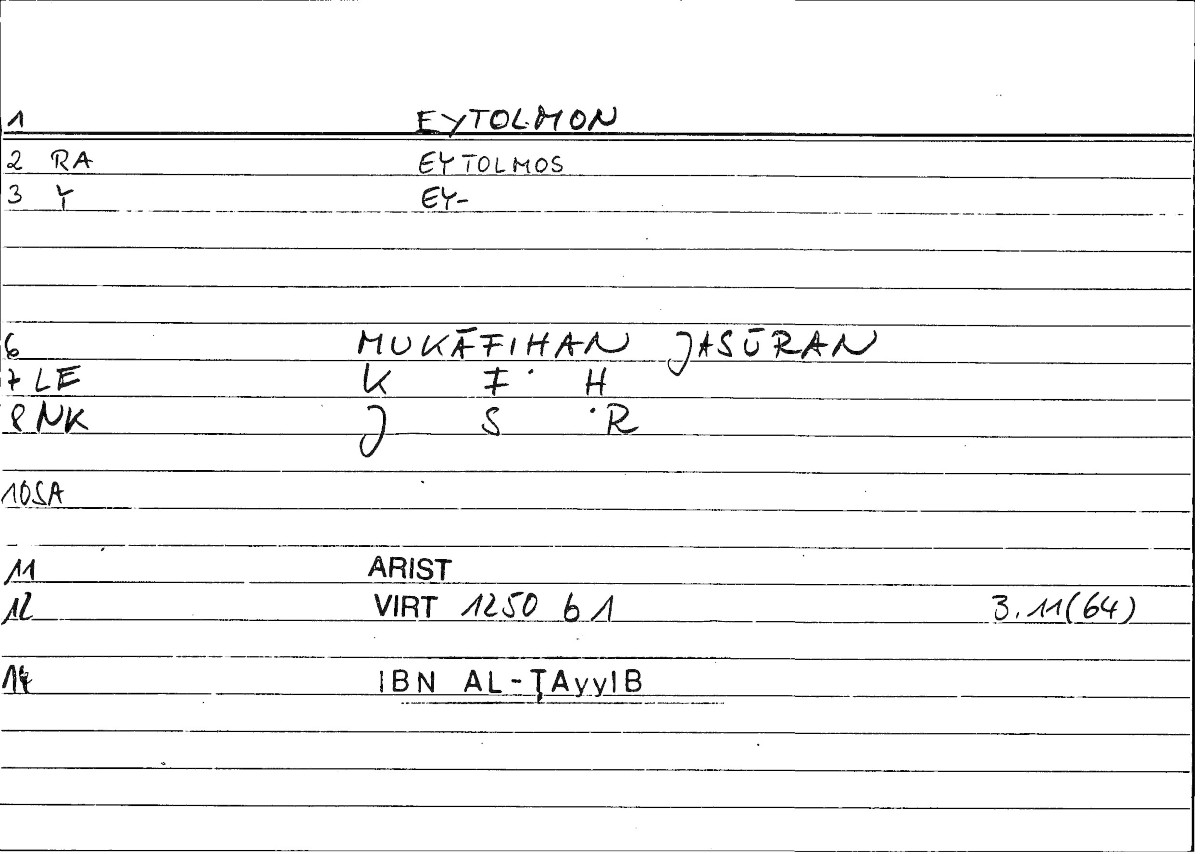 1 EYTOLMON
2 RA EYTOLMOS
3 Y EY-
6 MUKĀFIHAN JASŪRAN
7 LE K F H
8 NK J S R
10 SA
11 ARIST
12 VIRT 1250 b 1 3.11(64)
14 IBN AL-ṬAyyIB